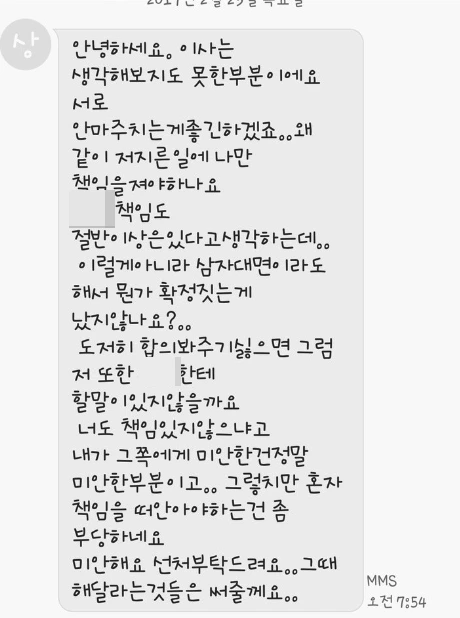 상
안녕하세요. 이사는
생각해보지도 못한부분이에요
서로
안마주치는게좋긴하겠죠..왜
같이 저지른일에 나만
책임을져야하나요
책임도
절반이상은있다고생각하는데..
이럴게아니라 삼자대면이라도
해서 뭔가 확정짓는게
났지않나요?..
도저히 합의봐주기싫으면 그럼
저 또한 한테
할말이있지않을까요
너도 책임있지않으냐고
내가 그쪽에게 미안한건정말
미안한부분이고.. 그렇치만 혼자
책임을 떠안아야하는건 좀
부당하네요
미안해요 선처부탁드려요..그때
해달라는것들은 써줄께요..
MMS
오전 7:54